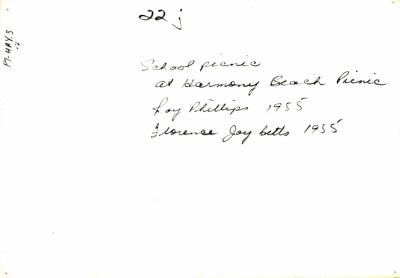 22j
School picnic
at Harmony Beach Picnic
Roy Phillips 1955
Florence Joy betts 1955